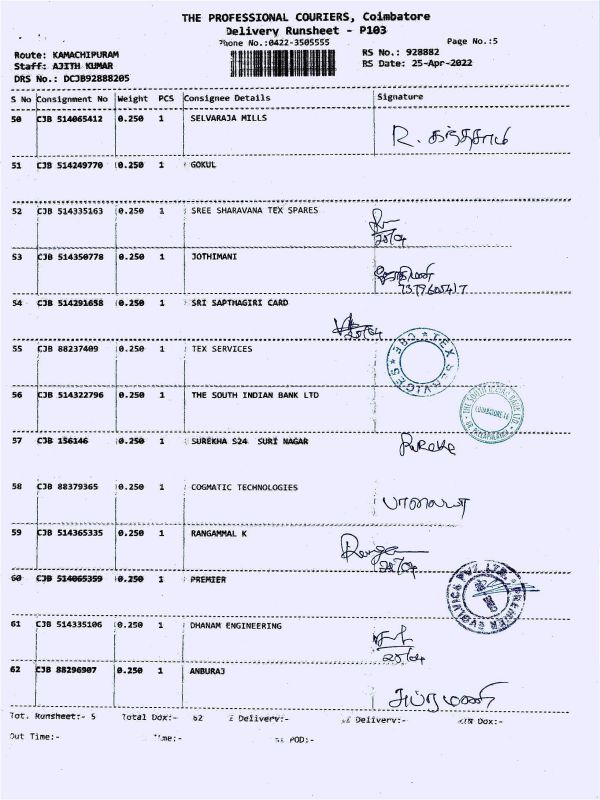 THE PROFESSIONAL COURIERS, Coimbatore
Delivery Runsheet - P103
Phone No.:0422-3505555
Page No.:5
Route: KAMACHIPURAM
RS No.: 928882
Staff: AJITH KUMAR
RS Date: 25-Apr-2022
DRS No.: DCJB92888205
S No Consignment No Weight PCS Consignee Details Signature
50 CJB 514065412 0.250 1 SELVARAJA MILLS
R. கந்தசாமி
51 CJB 514249770 0.250 1 GOKUL
52 CJB 514335163 0.250 1 SREE SHARAVANA TEX SPARES
25/04
53 CJB 514350778 0.250 1 JOTHIMANI
ஜோதிமணி
54 CJB 514291658 0.250 1 SRI SAPTHAGIRI CARD
25/04
55 CJB 88237409 0.250 1 TEX SERVICES
TEX SERVICES * CBE *
56 CJB 514322796 0.250 1 THE SOUTH INDIAN BANK LTD
THE SOUTH INDIAN BANK LTD.
57 CJB 156146 0.250 1 SUREKHA S24 SURI NAGAR
58 CJB 88379365 0.250 1 COGMATIC TECHNOLOGIES
59 CJB 514365335 0.250 1 RANGAMMAL K
25/04
60 CJB 514065359 0.250 1 PREMIER
PREMIER EVOLVICS PVT. LTD.
61 CJB 514335106 0.250 1 DHANAM ENGINEERING
25/04
62 CJB 88296907 0.250 1 ANBURAJ
Tot. Runsheet:- 5 Total Dox:- 62 Delivery:- Delivery:- Dox:-
Out Time:- Time:- POD:-